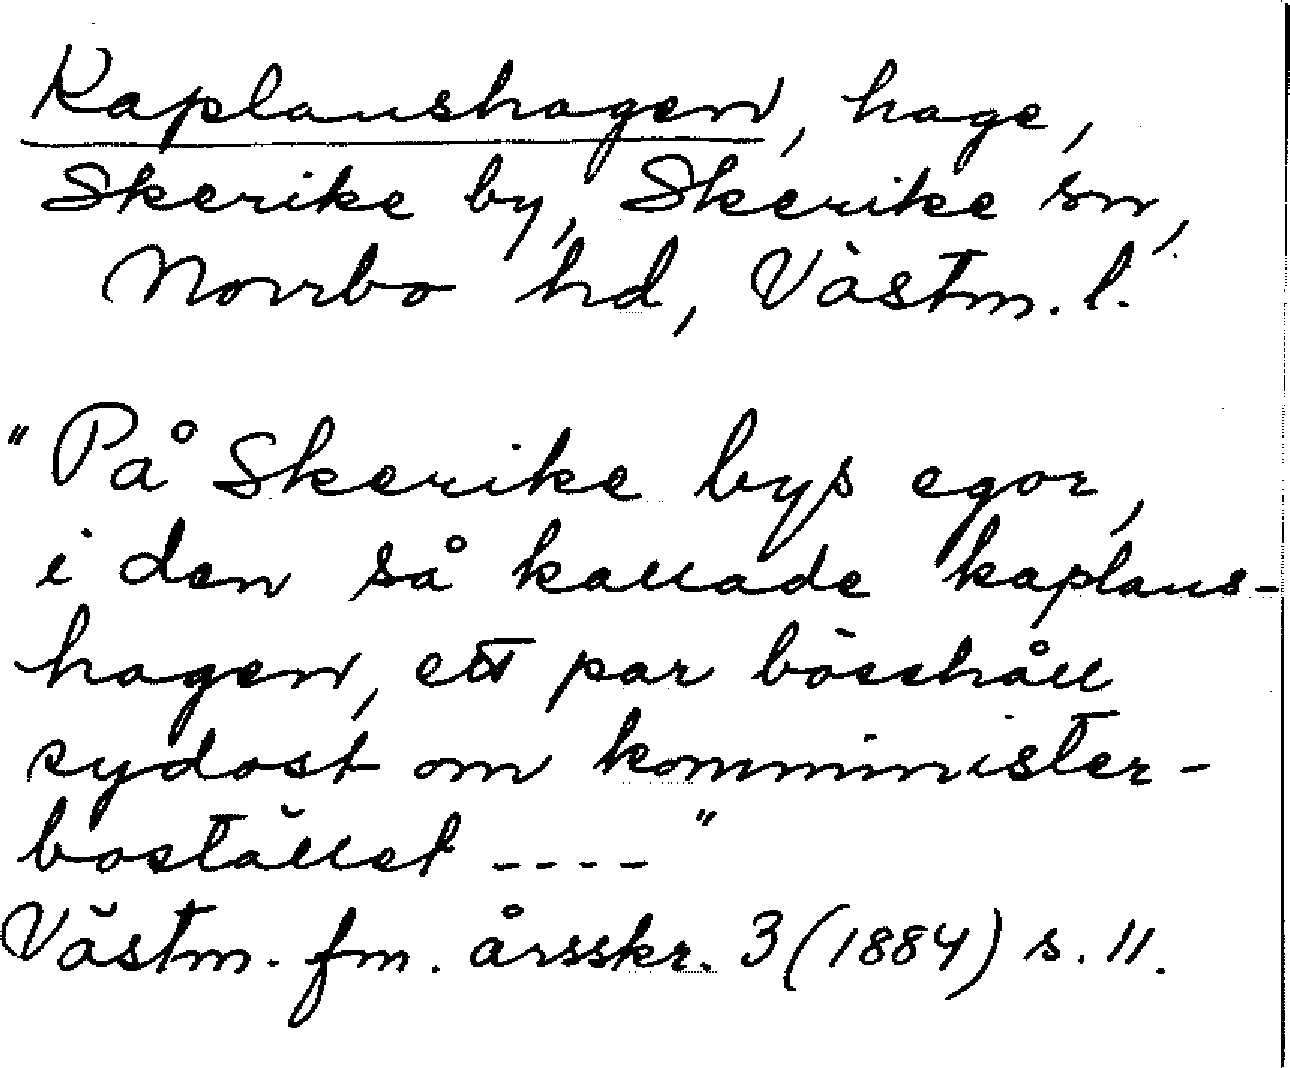 Kaplanshagen, hage,
Skerike by, Skerike sn,
Norrbo hd, Västm. l.
"På Skerike bys egor,
i den så kallade kaplans-
hagen, ett par bösshåll
sydost om komminister-
bostället ----"
Västm. fm. årsskr. 3 (1884) s. 11.